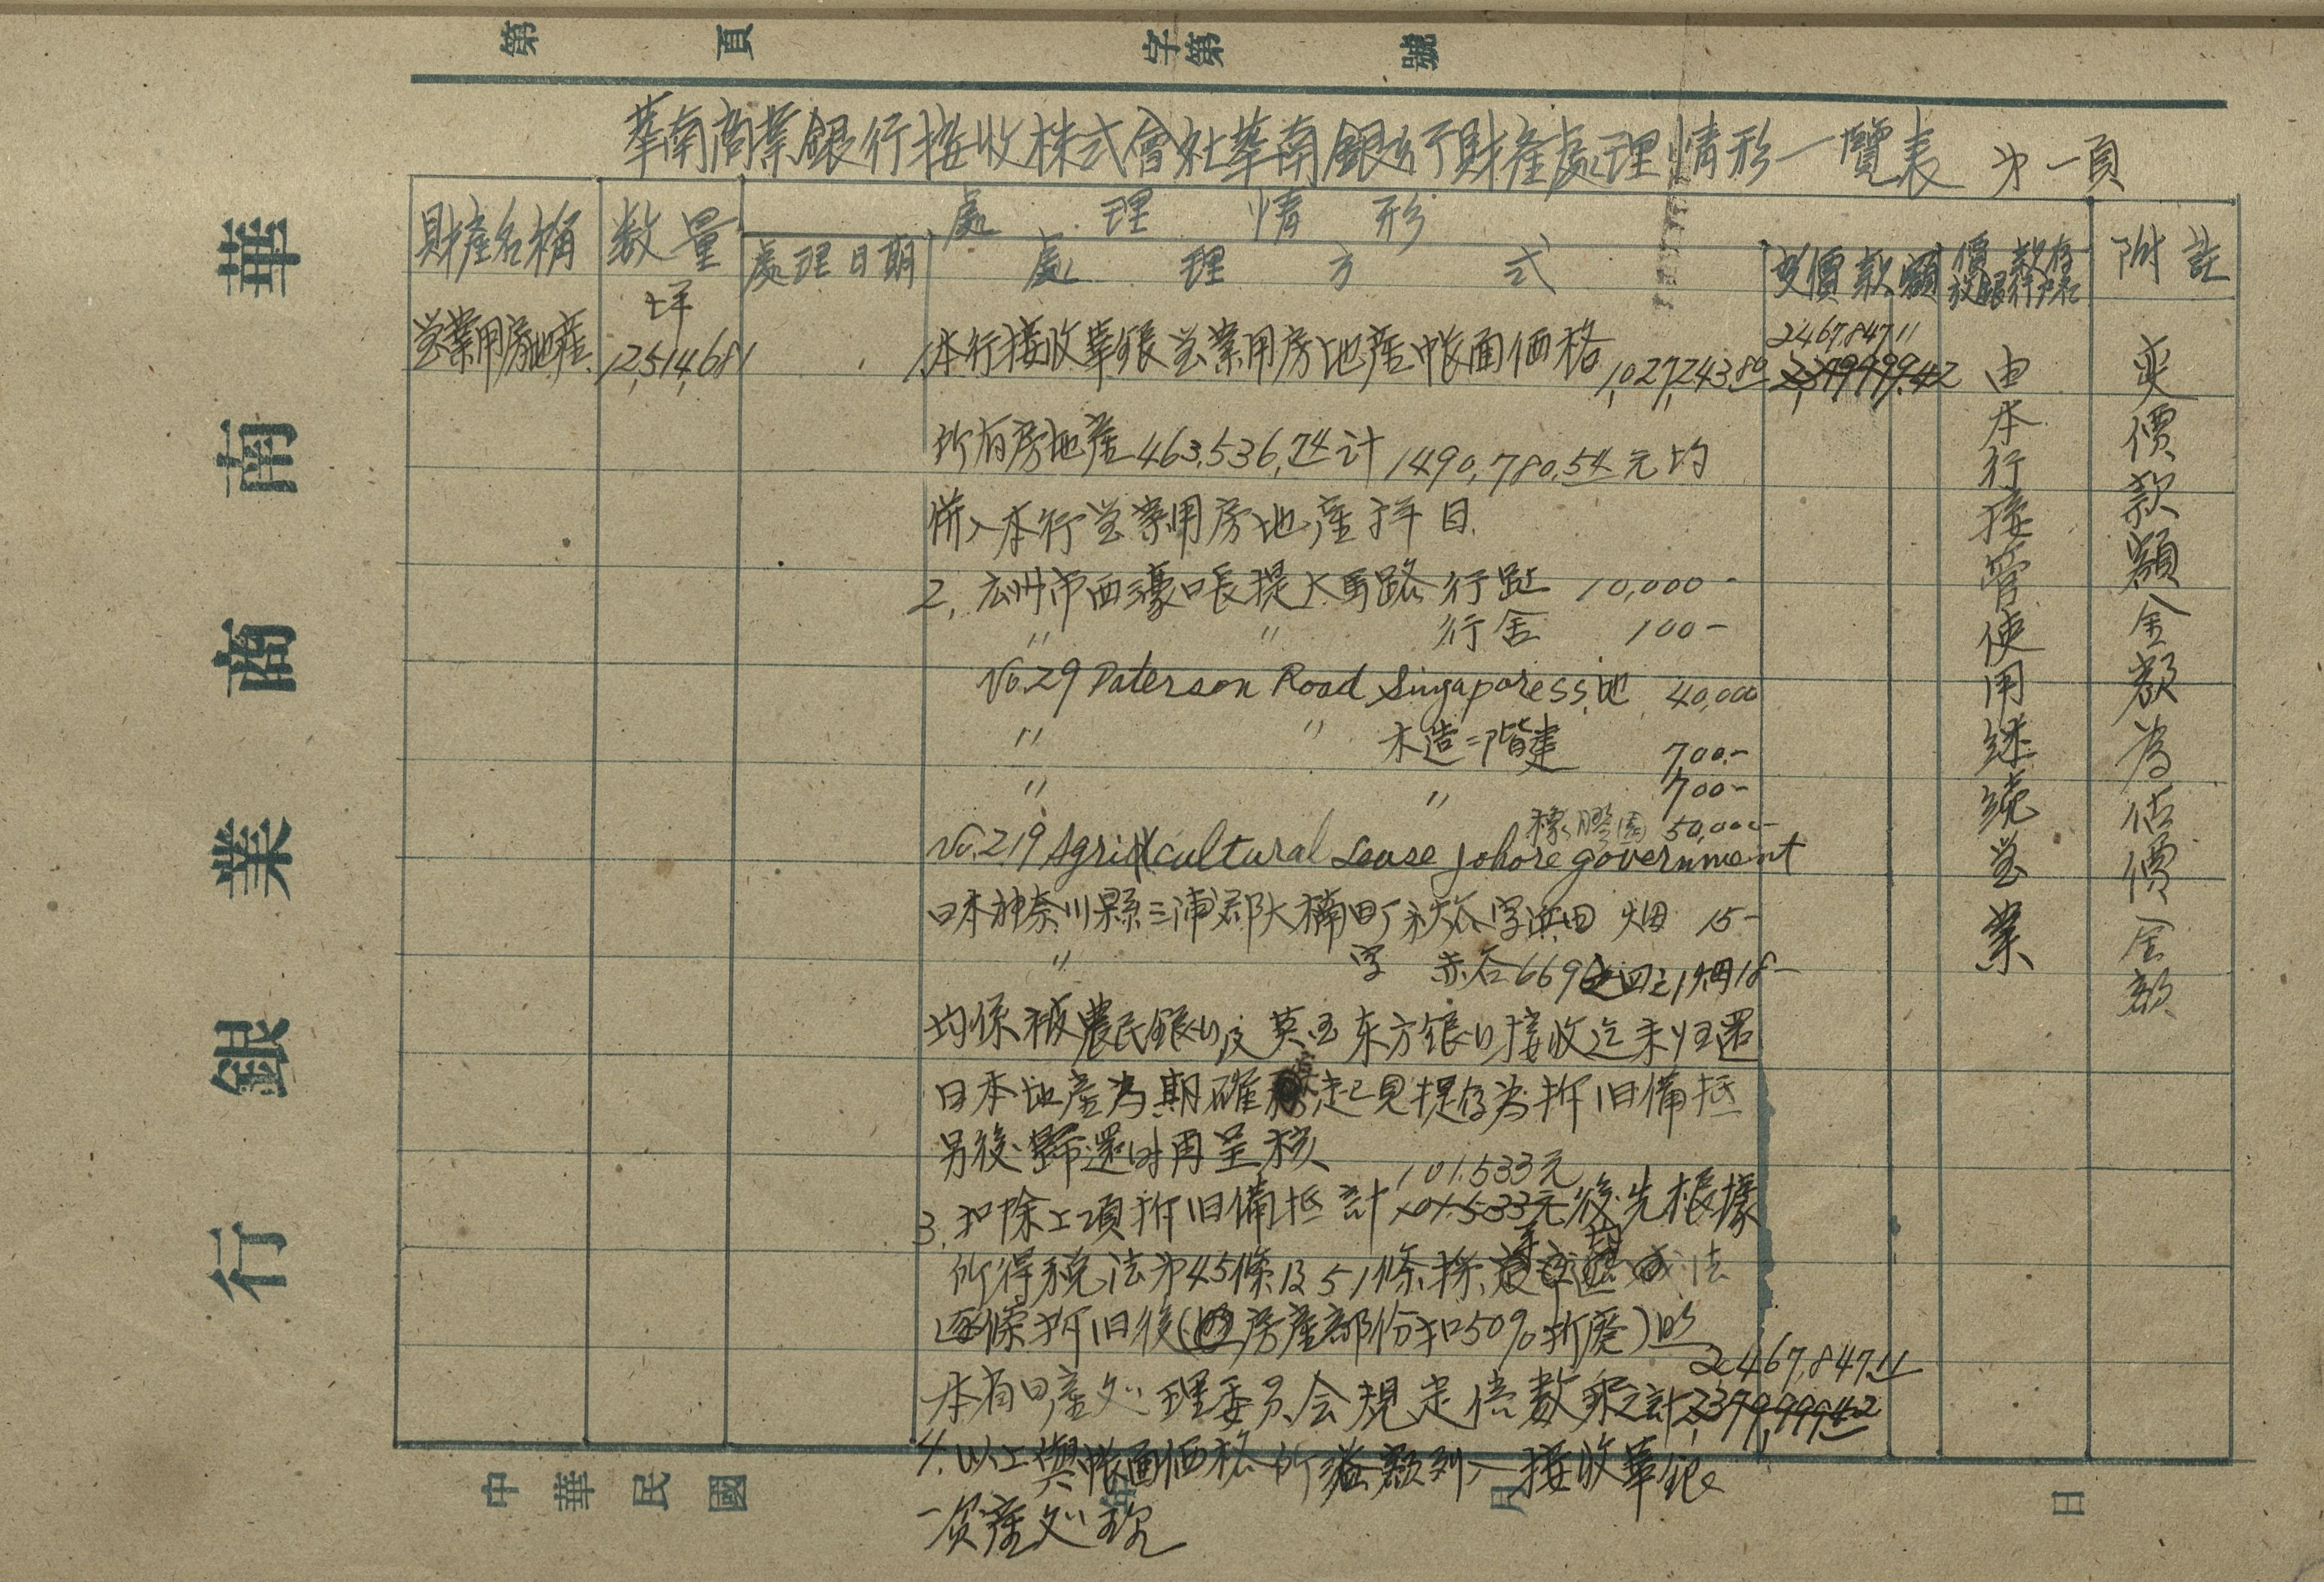 第 頁 字第 號
華南商業銀行接收株式會社華南銀行財產處理情形一覽表 第一頁
財產名稱 数量 處理情形 附註
處理日期 處理方式 变價款額 價款存放銀行
坪
营業用房地產 12,514,681
1.本行接收華銀营業用房地產帳面価格 1,027,243.80 2,379,999.42 2467847.11
所有房地產463,536,74计1490,780.54元均
併入本行营業用房地產科目
2. 広州市西濠口長提大馬路 行址 10,000-
〃 〃 行舍 100-
No.29 Paterson Road Singapore s.s.地 40,000
〃 〃 木造二階建 700-
〃 〃 700-
橡膠園 50,000-
No.219 Agricultural Lease Johore government
日本神奈川縣三浦郡大楠町秋谷字浜田 畑 15-
〃 字 赤谷 畑18-
均係被農民銀行及英国东方銀行接收迄未归还
日本地產为期確 起見提存为折旧備抵
另後歸還时再呈核
101.533元
3.扣除上項折旧備抵計101.533元後先根據
所得稅法第45條及51條採 法
逐條折旧後(房產部份扣50%折廢)照
2,467,847.11
本省日產処理委员会規定倍數乘之計2,379,999.42
4.以上與帳面価格所益額列入接收華銀
資產処理
由本行接管使用継続营業
变價款額金額為估價金額
華南商業銀行
中華民國 年 月 日